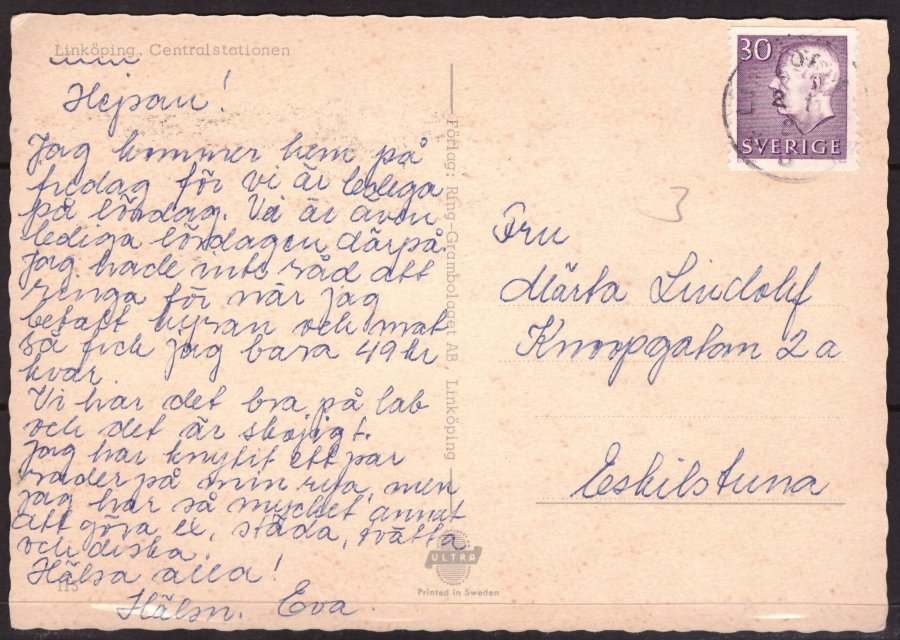 Linköping. Centralstationen
Hejsan!
Jag kommer hem på
fredag för vi är lediga
på lördag. Vi är även
lediga lördagen därpå.
Jag hade inte råd att
ringa för när jag
betalt hyran och mat
så fick jag bara 49 kr
kvar.
Vi har det bra på lab
och det är skojigt.
Jag har knytit ett par
rader på min rya, men
jag har så mycket annat
att göra ex. städa, tvätta
och diska.
Hälsa alla!
Hälsn. Eva.
113
Förlag: Ring-Grambolaget AB, Linköping
ULTRA
Printed in Sweden
30
SVERIGE
3
Fru
Märta Lindolf
Knoopgatan 2a
Eskilstuna